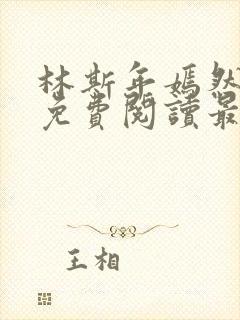 林斯年嫣然
免費閱讀最
王相